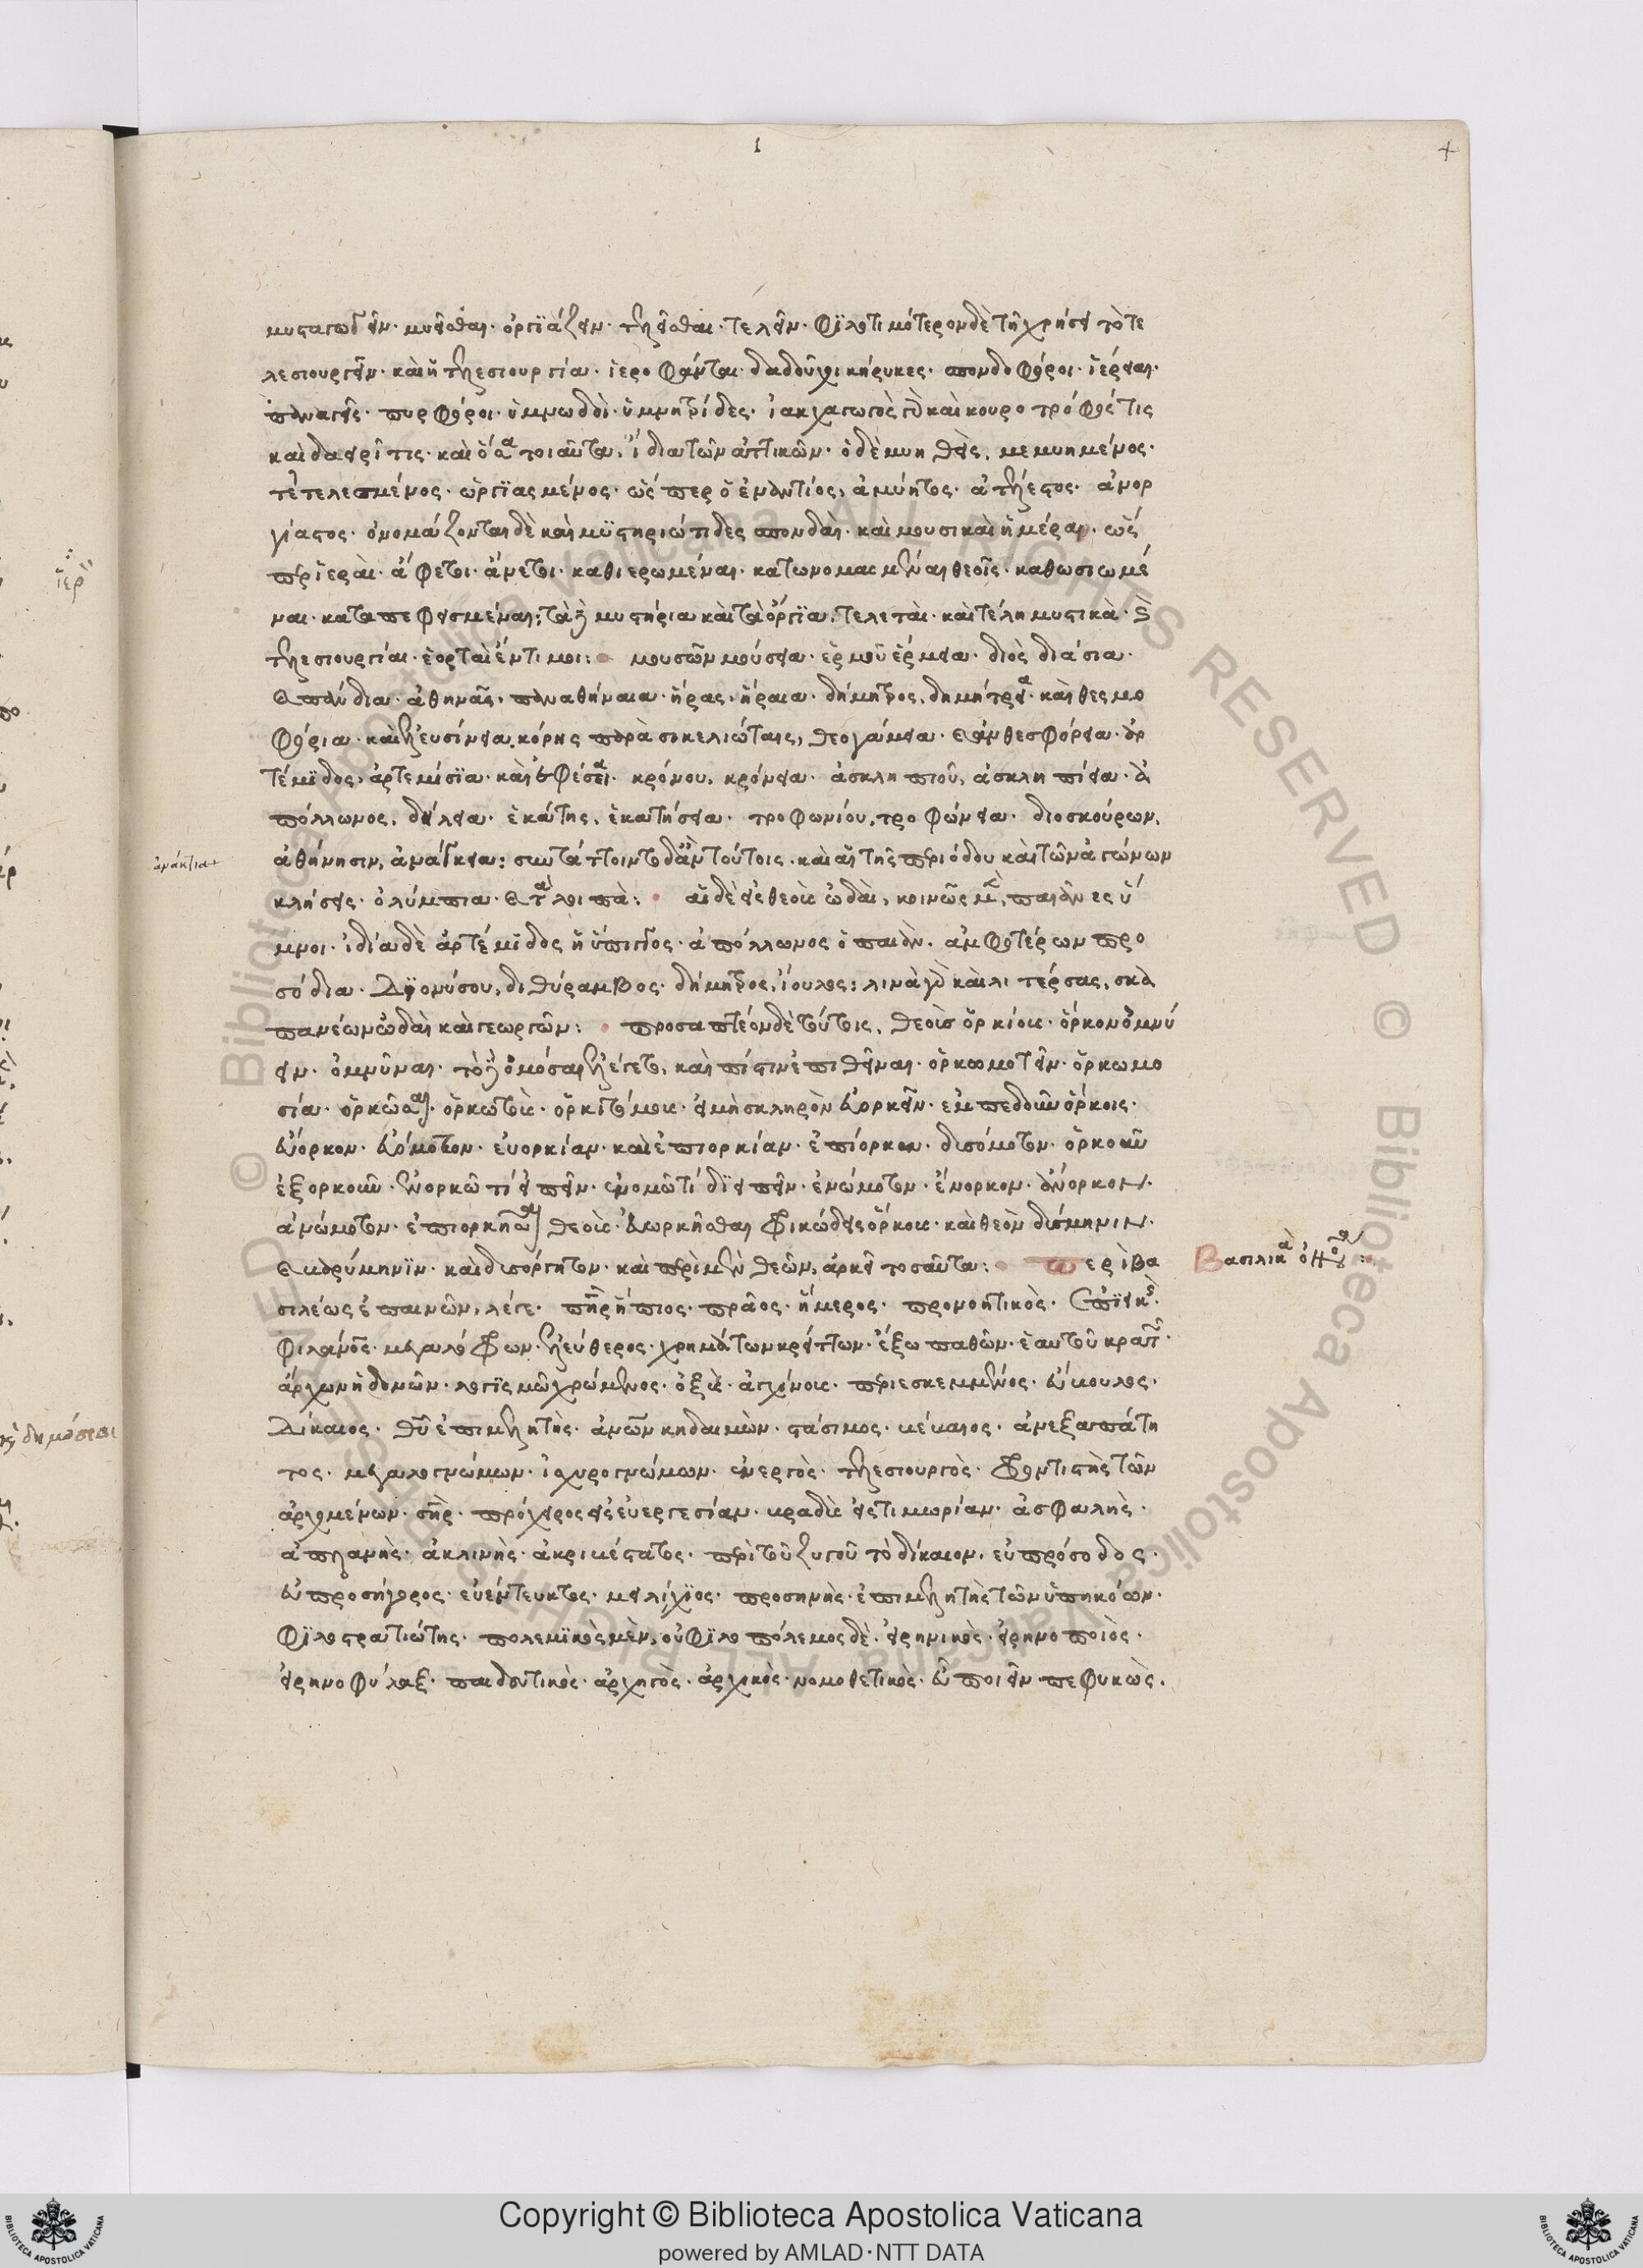 4
μυσταγωγεῖν· μυεῖσθαι· ὀργϊάζειν· τελεῖσθαι· τελεῖν· φϊλοτιμότερον δὲ τῆ χρήσει τὸ τε
λεσιουργεῖν· καὶ ἡ τελεσιουργία· ἱεροφάνται· δαδοῦχοι κήρυκες· σπονδοφόροι· ἱέρειαι·
παναγεῖς· πυρφόροι· ὑμνωδοὶ· ὑμνητρίδες· ἰακχαγωγὸς γὰρ καὶ κουροτρόφος τις
καὶ δαειρῖτις· καὶ ὅσα τοιαῦτα, ἴδια τῶν ἀττικῶν· ὁ δὲ μυηθεὶς, μεμυημένος·
τετελεσμένος· ὠργϊασμένος· ὥσπερ ὁ ἐναντίος, ἀμύητος· ἀτέλεστος· ἀνορ
γίαστος· ὀνομάζονται δὲ καὶ μϋστηριώτιδες σπονδαὶ· καὶ μουσικαὶ ἡμέραι· ὥσ
περ ἱεραὶ· ἄφετοι· ἄνετοι· καθιερωμέναι· κατωνομασμέναι θεοῖς· καθωσιωμέ
ναι· καταπεφασμέναι: τὰ δὲ μυστήρια καὶ τὰ ὄργϊα, τελεταὶ· καὶ τέλη μυστικὰ· καὶ
τελεσιουργίαι· ἑορταὶ ἔντιμοι: μουσῶν μούσεια· ἑρμοῦ ἕρμαια· διὸς διάσια·
καὶ πάνδια· ἀθηνᾶς, παναθήναια· ἥρας, ἥραια· δήμητρος, δημήτρεια· καὶ θεσμο
φόρια· καὶ ἐλευσίνεια, κόρης παρὰ σικελιώταις, θεογάμεια· καὶ ἀνθεσφόρεια· ἀρ
τέμϊδος, ἀρτεμίσϊα· καὶ ἐφέσεια· κρόνου, κρόνεια· ἀσκληπιοῦ, ἀσκληπίεια· ἀ
πόλλωνος, δήλεια· ἑκάτης, ἑκατήσεια· τροφωνίου, τροφώνεια· διοσκούρων,
ἀνάκεια
ἀθήνησιν, ἀνάγκεια: συντάττοιντο δ' ἂν τούτοις, καὶ αἱ τῆς περιόδου καὶ τῶν ἀγώνων
κλήσεις· ὀλύμπια· καὶ τὰ λοιπὰ: αἱ δὲ εἰς θεοὺς ὠδαὶ, κοινῶς μὲν, παιᾶνες ὕ
μνοι· ἰδία δὲ ἀρτέμϊδος ἡ ὕπιγγος· ἀπόλλωνος ὁ παιὰν· ἀμφοτέρων προ
σόδια· Διονύσου, διθύραμβος· δήμητρος, ἴουλος: λινὰ γὰρ καὶ λιτέρσας, σκα
πανέων ὠδαὶ καὶ γεωργῶν: προσαπτέον δὲ τούτοις, θεοὺς ὁρκίους· ὅρκον ὀμνύ
ειν· ὀμνύναι· τὸ δὲ ὀμόσαι λέγεται, καὶ πίστιν ἐπιθεῖναι· ὁρκωμοτεῖν· ὁρκωμο
σία· ὁρκῶσαι· ὁρκωτὰς· ὁρκιτόμους· εἰ μὴ σκληρὸν εὐορκεῖν· ἐμπεδοῦν ὅρκοις·
εὔορκον· εὐόμοτον· εὐορκίαν· καὶ ἐπιορκίαν· ἐπίορκον· δισόμοτον· ὁρκοῦν
ἐξορκοῦν· ἐνορκῶ τί εἰπεῖν· ἐνομῶτί δϊειπεῖν· ἐνώμοτον· ἔνορκον· ἀνόρκον·
ἀνώμοτον· ἐπιορκῆσαι θεοὺς· εὐωρκῆσθαι φρικώδεις ὅρκους· καὶ θεὸν δισμηνιν·
καὶ βαρύμηνϊν· καὶ δισόργητον· καὶ περὶ μὲν θεῶν, ἀρκεῖ τοσαῦτα: Περὶ βα
Βασιλικὰ ὀνόματα:
σιλέως ἐπαινῶν, λέγε· πατὴρ ἤπιος· πρᾶος· ἥμερος· προνοητικὸς· ἐπϊεικὴς·
φιλάνθρωπος· μεγαλόφρων· ἐλεύθερος· χρημάτων κρείττων· ἔξω παθῶν· ἑαυτοῦ κρατῶν·
ἄρχων ἡδονῶν· λογϊσμῶ χρώμενος· ὀξὺς· ἀγχίνους· περιεσκεμμένος· εὔβουλος·
Δίκαιος· θεοῦ ἐπιμελητὴς· ἀνθρώπων κηδαιμὼν· στάσιμος· βέβαιος· ἀνεξαπάτη
τος· μεγαλογνώμων· ἰσχυρογνώμων· ἐνεργὸς· τελεσιουργὸς· φροντιστὴς τῶν
ἀρχομένων· σωτὴρ· πρόχειρος εἰς εὐεργεσίαν· βραδὺς εἰς τιμωρίαν· ἀσφαλὴς·
ἀπλανὴς· ἀκλινὴς· ἀκριβέστατος· περὶ τοῦ ζυγοῦ τὸ δίκαιον, εὐπρόσοδος·
εὐπροσήγορος· εὐέντευκτος· μειλίχϊος· προσηνὴς· ἐπιμελητὴς τῶν ὑπηκόων·
φϊλοστρατιώτης· πολεμϊκὸς μὲν, οὐ φϊλοπόλεμος δὲ· εἰρηνικὸς· εἰρηνοποιὸς·
εἰρηνοφύλαξ· παιδευτικὸς· ἀρχηγὸς· ἀρχικὸς· νομοθετικὸς· εὖ ποιεῖν πεφυκὼς.
Copyright © Biblioteca Apostolica Vaticana
powered by AMLAD·NTT DATA